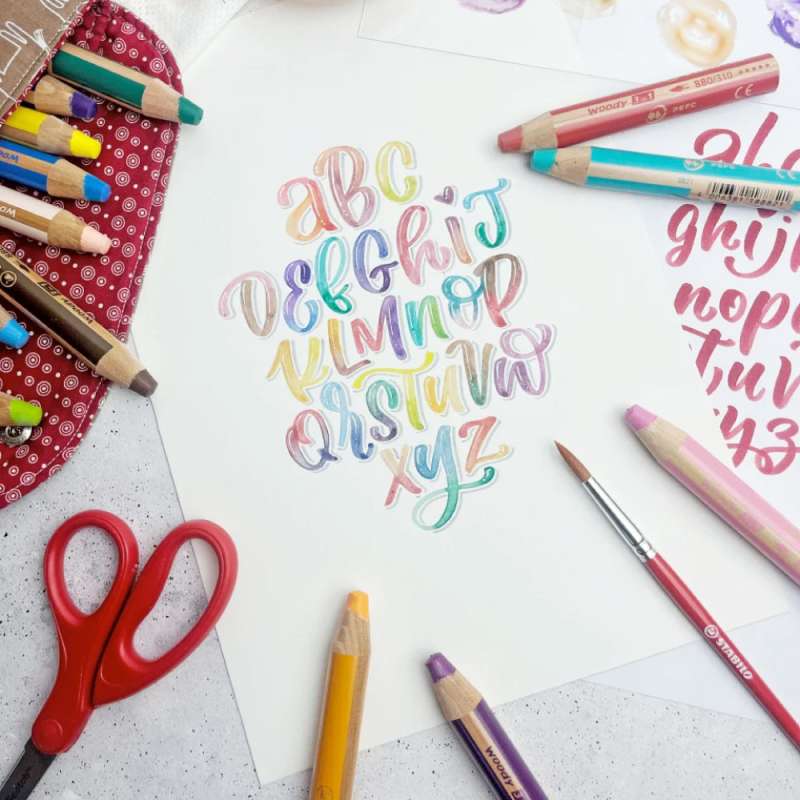 aBC
DEfGhiJ
KLMNOP
QRSTUVW
XYZ
woody 3 in 1 880/310 CE
ghijk
nopq
tuv
yz
STABILO
woody 3